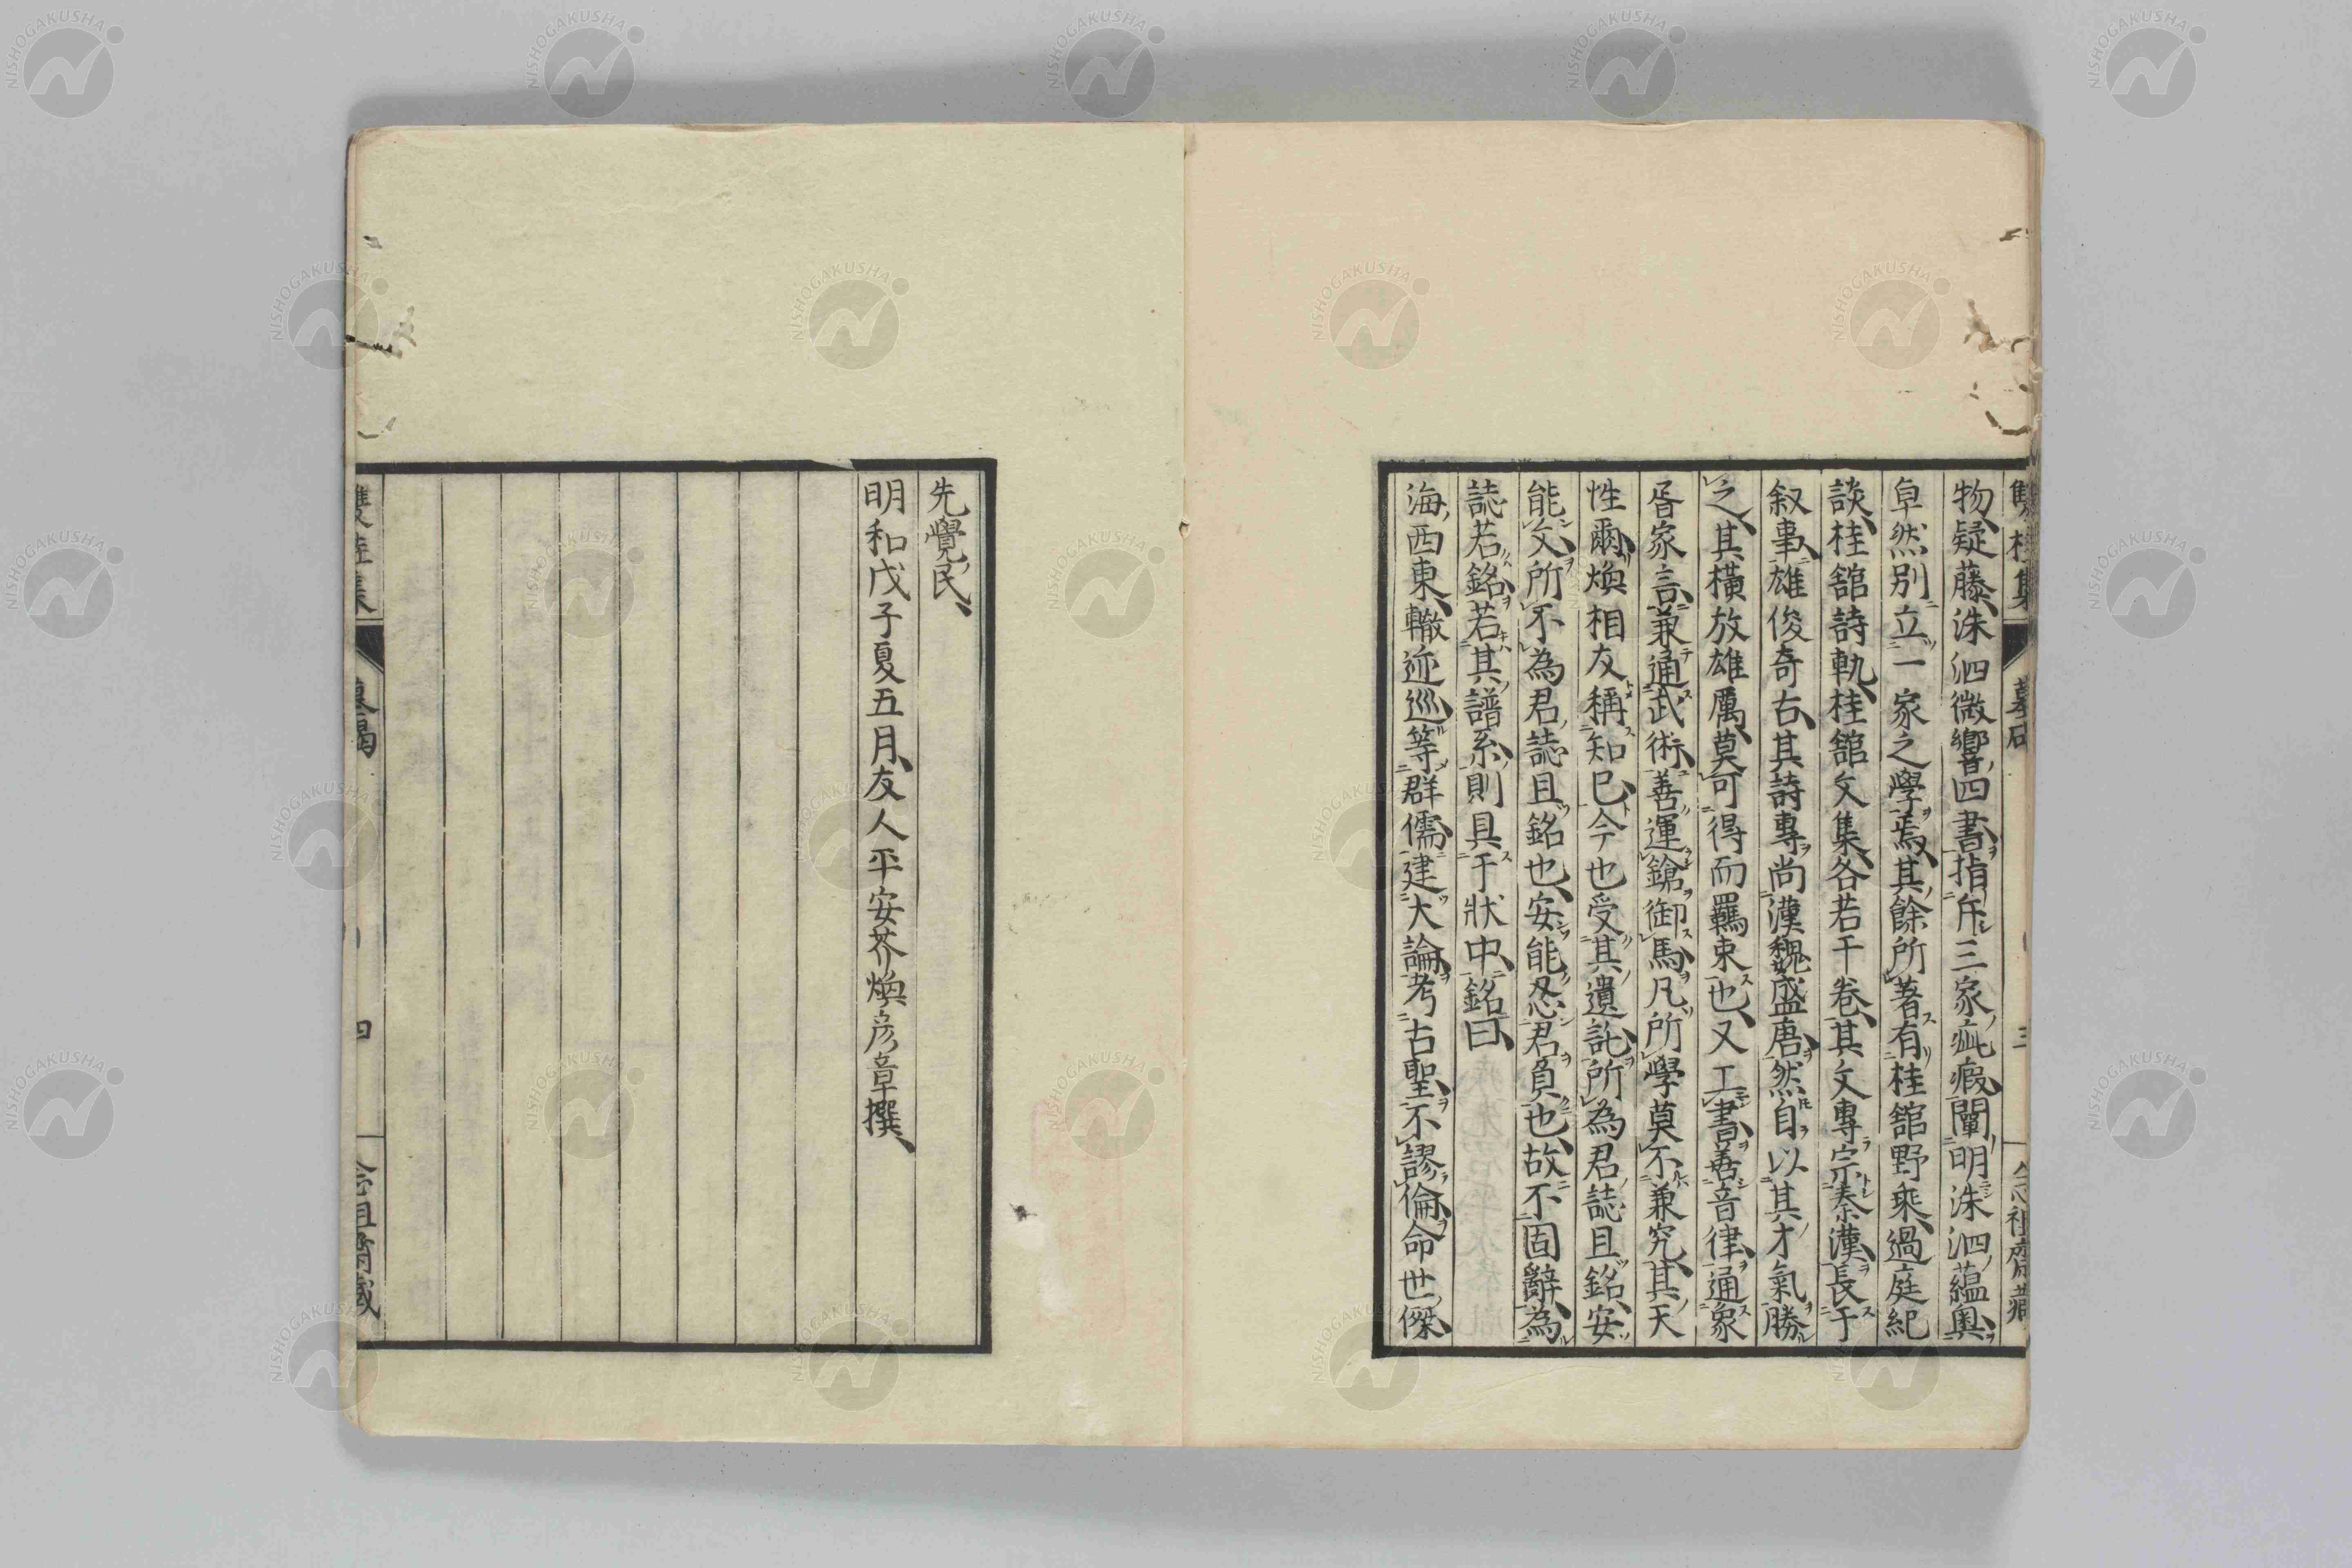 物疑藤洙泗微響四書指斥三家疵瑕闡明洙泗蘊奧
卓然別立一家之學焉其餘所著有桂舘野乘過庭紀
談桂舘詩軌桂舘文集各若干卷其文專宗秦漢長于
叙事雄俊奇古其詩專尚漢魏盛唐然自以其才氣勝
之其橫放雄厲莫可得而羈束也又工書善音律通象
胥家言兼通武術善運鎗御馬凡所學莫不兼究其天
性爾煥相友稱知己今也受其遺託所為君誌且銘安
能文所不為君誌且銘也安能忍君負也故不固辭為
誌若銘若其譜系則具于狀中銘曰
海西東轍迹巡等群儒建大論考古聖不謬倫命世傑
先覺民
明和戊子夏五月友人平安芥煥彦章撰
雙桂集
墓碣
四
念祖齋藏
NISHOGAKUSHA